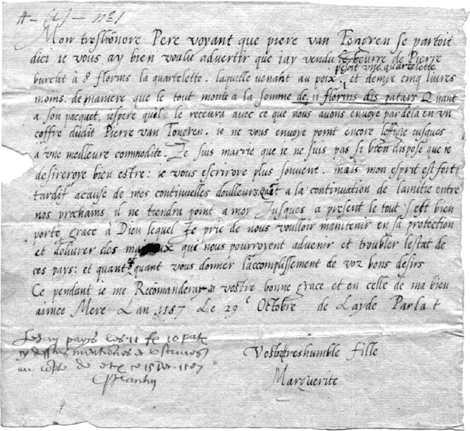 Mon treshonore Pere voyant que piere van Tongren se partoit
dici je vous ay bien voulu advertir que jay vendu le beurre de Pierre
burlat à 8 florins la quartelotte. laquelle venant au poix et demye cinq livres
pesoit une quartelotte
moins. de maniere que le tout monte a la somme de 11 florins dis patars Quant
a son pacquet, jespere quelle le recevra avec ce que nous avons envoye pardela en un
coffre dudict Pierre van Tongren. je ne vous envoye point encore letige jusques
a vne meilleure commodite. Je suis marrie que je ne suis pas si bien dispose que je
desireroye bien estre: je vous escriroye plus souvent. mais mon esprit est fort
tardif acause de mes continuelles doulleurs Quant a la continuation de lamitie entre
nos prochains il ne tiendra point a moy. Jusques a present le tout s'est bien
porte grace à Dieu lequel Je prie de nous voulloir maintenir en sa protection
et delivrer des qui nous pourroyent advenir et troubler lestat de
ces pays: et quant quant vous donner l'accomplissement de voz bons desirs
Ce pendant je me Recomanderay a vostre bonne grace et en celle de ma bien
aimee Mere Lan 1587 Le 29e Octobre de Leyde Par la t
Vostre treshumble fille
Marguerite